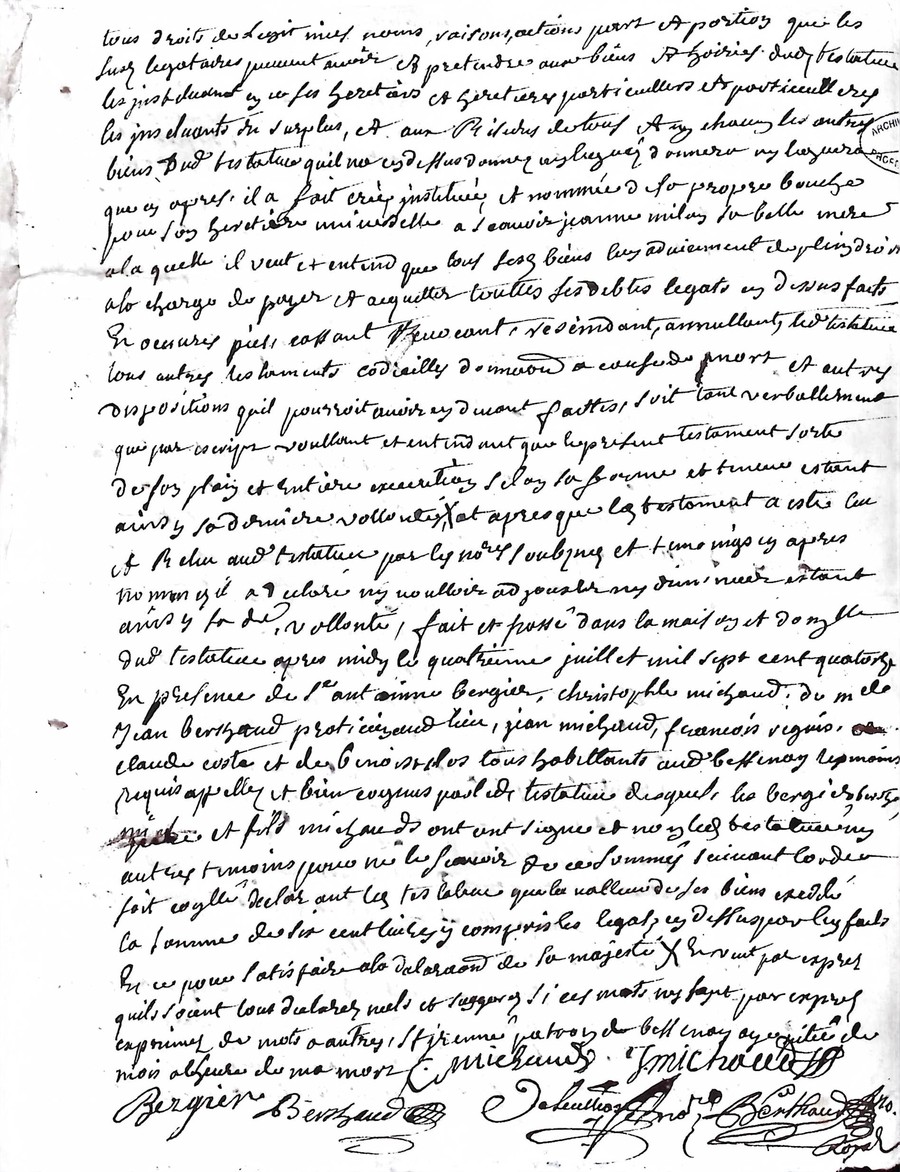 tous droits de legitimes noms, raisons, actions part et portion que les
susd legataires peuvent avoir et pretendre aux biens et hoiries dud testateur
les instituant en ce ses heretiers et heretieres particulliers et particullieres
les incluants du surplus, et aux Residus de tous et un chacun les autres
biens dud testateur quil na cy dessus donnez ny leguez donnera ny leguera
que cy apres, il a fait créé instituée et nommée de sa propre bouche
pour son heretière universelle a scavoir jeanne milan sa belle mere
a la quelle il veut et entend que tous sesd biens luy adviennent de plein droit
a la charge de payer et acquitter touttes ses debtes legats cy dessus faits
En oeuvres pies, cassant Revocant, rescindant, annullant, led testateur
tous autres testaments codicilles donnaon a cause de mort et autres
dispositions quil pourroit avoir cy devant faittes, soit tant verballement
que par escript voullant et entendant que le present testament sorte
de son plain et entière execution selon sa forme et teneur estant
ainsy sa derniere vollonté, X et apres que led testament a esté leu
et Releu aud testateur par les nores soubznes et temoings cy apres
nommez il a declaré ny voulloir adjouster ny diminuer estant
ainsy sa de vollonté, fait et passé dans la maison et domylle
dud testateur apres midy le quatrieme juillet mil sept cent quatorze
En presence de Sr antoinne bergier, christophle michaud, de me
Jean berthaud praticien aud lieu, jean michaud, francois
claude coste et de benoist tous habittants aud bessenay temoins
requis appellez et bien cognus par led testateur desquels les bergier berthaud
et fils michauds ont signé et non led testateur ny
autres temoins pour ne le scavoir de ce sommés suivant lordce
fait declarant led testateur que la valleur de ses biens exedde
la somme de six cent livres y compris les legats cy dessus par luy faits
En ce pour satisfaire a la declaraon de sa majesté X
quils soient tous declarez nuls et suggerez si ces mots ny sont par expres
exprimez de mots a autres, St jrenné patron de bessenay ayez pitié de
mois a lheure de ma mort C. Michaud. J michaud
Bergier Berthaud Berthaud no.
Royal